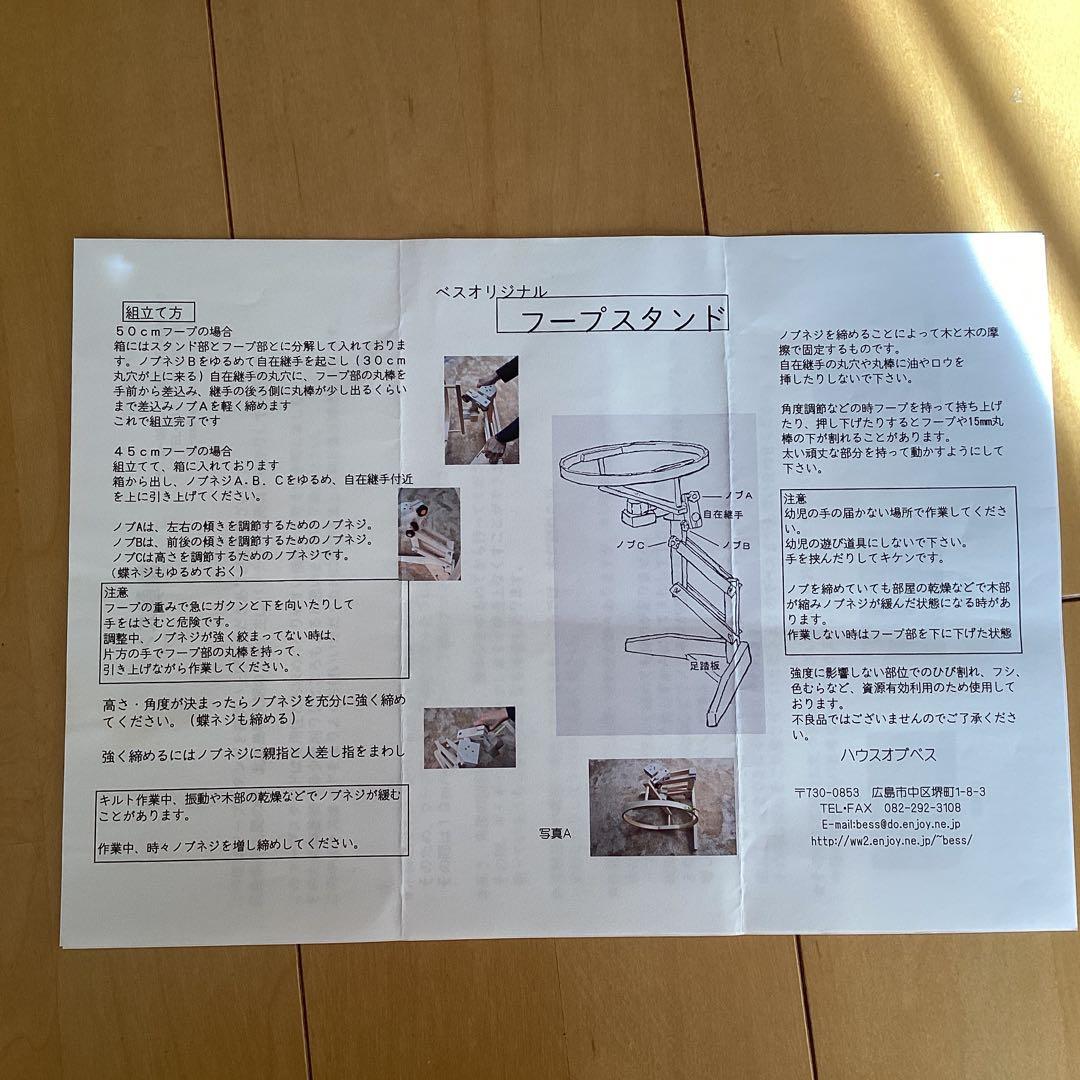 組立て方
５０ｃｍフープの場合
箱にはスタンド部とフープ部とに分解して入れておりま
す。ノブネジＢをゆるめて自在継手を起こし（３０ｃｍ
丸穴が上に来る）自在継手の丸穴に、フープ部の丸棒を
手前から差込み、継手の後ろ側に丸棒が少し出るくらい
まで差込みノブＡを軽く締めます
これで組立完了です
４５ｃｍフープの場合
組立てて、箱に入れております
箱から出し、ノブネジＡ.Ｂ．Ｃをゆるめ、自在継手付近
を上に引き上げてください。
ノブAは、左右の傾きを調節するためのノブネジ。
ノブBは、前後の傾きを調節するためのノブネジ。
ノブCは高さを調節するためのノブネジです。
（蝶ネジもゆるめておく）
注意
フープの重みで急にガクンと下を向いたりして
手をはさむと危険です。
調整中、ノブネジが強く絞まってない時は、
片方の手でフープ部の丸棒を持って、
引き上げながら作業してください。
高さ・角度が決まったらノブネジを充分に強く締め
てください。（蝶ネジも締める）
強く締めるにはノブネジに親指と人差し指をまわし
キルト作業中、振動や木部の乾燥などでノブネジが緩む
ことがあります。
作業中、時々ノブネジを増し締めしてください。
ベスオリジナル
フープスタンド
ノブA
自在継手
ノブC
ノブB
足踏板
写真A
ノブネジを締めることによって木と木の摩
擦で固定するものです。
自在継手の丸穴や丸棒に油やロウを
挿したりしないで下さい。
角度調節などの時フープを持って持ち上げ
たり、押し下げたりするとフープや15mm丸
棒の下が割れることがあります。
太い頑丈な部分を持って動かすようにして
下さい。
注意
幼児の手の届かない場所で作業してくださ
い。
幼児の遊び道具にしないで下さい。
手を挟んだりしてキケンです。
ノブを締めていても部屋の乾燥などで木部
が縮みノブネジが緩んだ状態になる時があ
ります。
作業しない時はフープ部を下に下げた状態
強度に影響しない部位でのひび割れ、フシ、
色むらなど、資源有効利用のため使用して
おります。
不良品ではございませんのでご了承くださ
い。
ハウスオブベス
〒730-0853　広島市中区堺町1-8-3
TEL・FAX　082-292-3108
E-mail:bess@do.enjoy.ne.jp
http://ww2.enjoy.ne.jp/~bess/